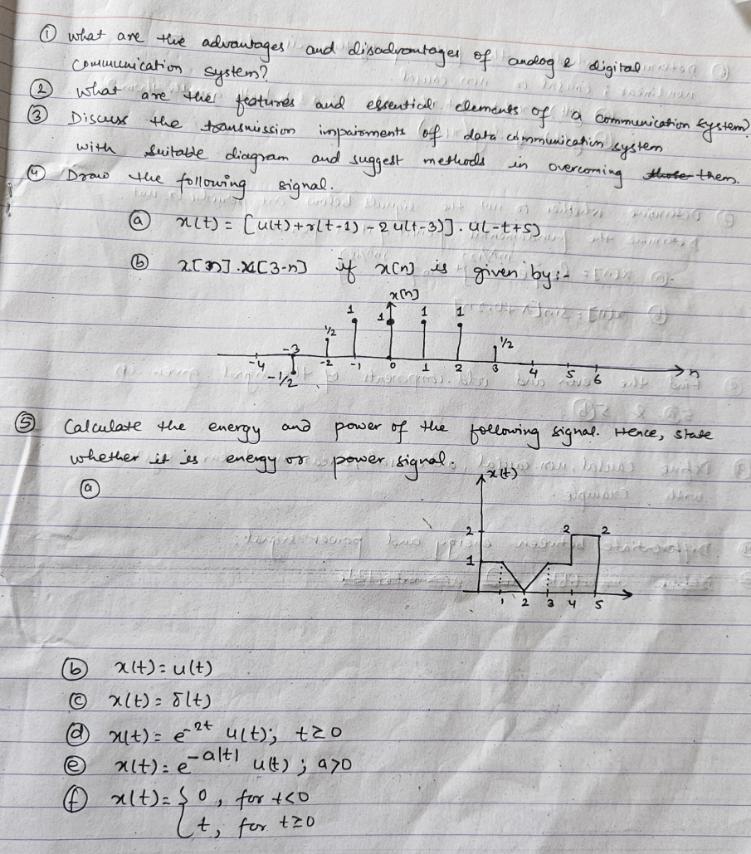 ① What are the advantages and disadvantages of analog & digital
communication system?
② What are the features and essential elements of a communication system?
③ Discuss the transmission impairments of data communication system
with suitable diagram and suggest methods in overcoming them.
④ Draw the following signal.
ⓐ x(t) = [u(t)+r(t-1) - 2u(t-3)] . u(-t+5)
ⓑ x[n].x[3-n] if x[n] is given by:-
x[n]
1 1 1 1
1/2 1/2
-4 -3 -2 -1 0 1 2 3 4 5 6 n
-1/2
⑤ Calculate the energy and power of the following signal. Hence, state
whether it is energy or power signal.
ⓐ x(t)
2 2 2
1
1 2 3 4 5
ⓑ x(t) = u(t)
ⓒ x(t) = δ(t)
ⓓ x(t) = e^-2t u(t); t≥0
ⓔ x(t) = e^-a|t| u(t) ; a>0
ⓕ x(t) = { 0, for t<0
t, for t≥0